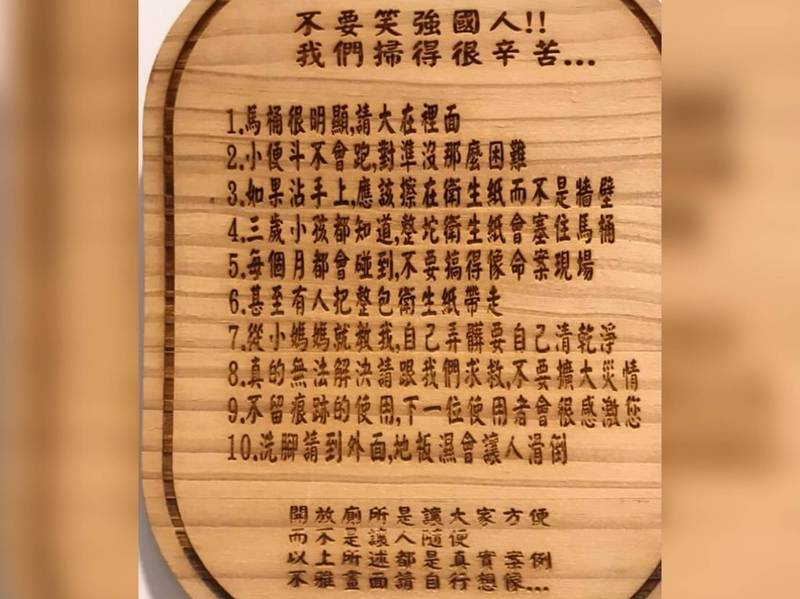 不要笑強國人!!
我們掃得很辛苦...
1.馬桶很明顯,請大在裡面
2.小便斗不會跑,對準沒那麼困難
3.如果沾手上,應該擦在衛生紙而不是牆壁
4.三歲小孩都知道,整坨衛生紙會塞住馬桶
5.每個月都會碰到,不要搞得像命案現場
6.甚至有人把整包衛生紙帶走
7.從小媽媽就教我,自己弄髒要自己清乾淨
8.真的無法解決請跟我們求救,不要擴大災情
9.不留痕跡的使用,下一位使用者會很感激您
10.洗腳請到外面,地板濕會讓人滑倒
開放廁所是讓大家方便
而不是讓人隨便
以上所述都是真實案例
不雅畫面請自行想像...